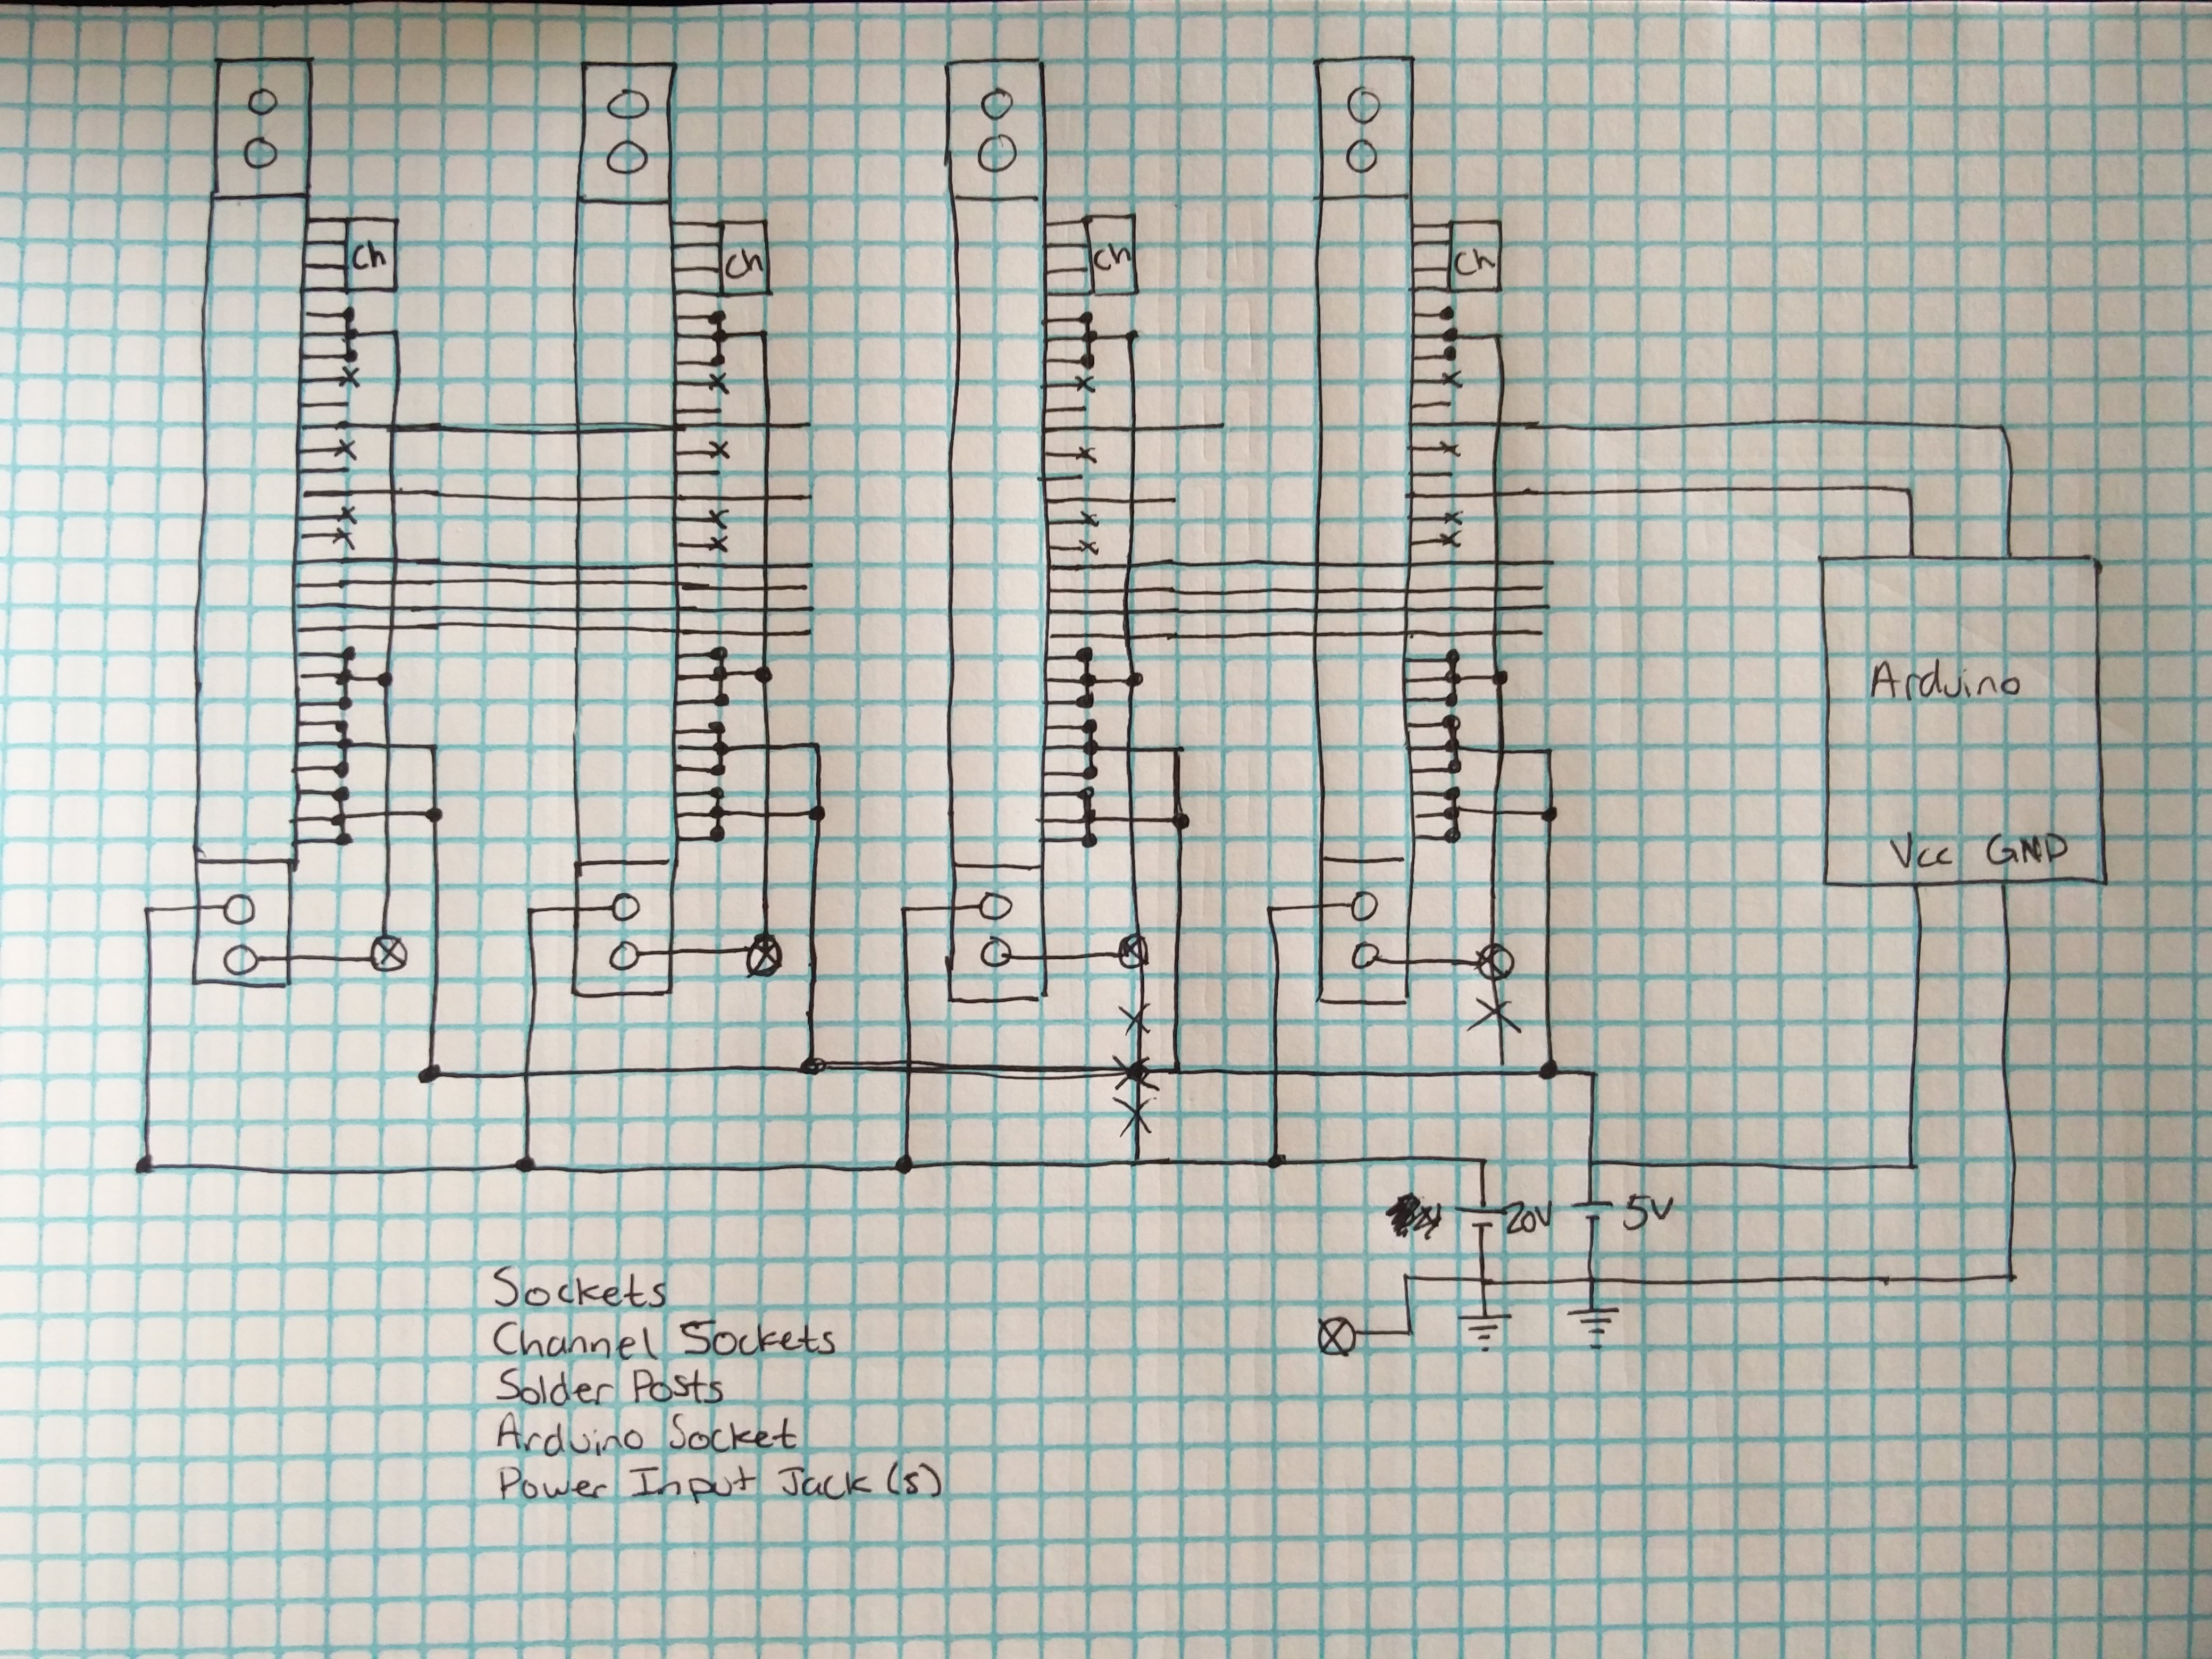 Ch
Ch
Ch
Ch
Arduino
Vcc GND
20V
5V
Sockets
Channel Sockets
Solder Posts
Arduino Socket
Power Input Jack (s)